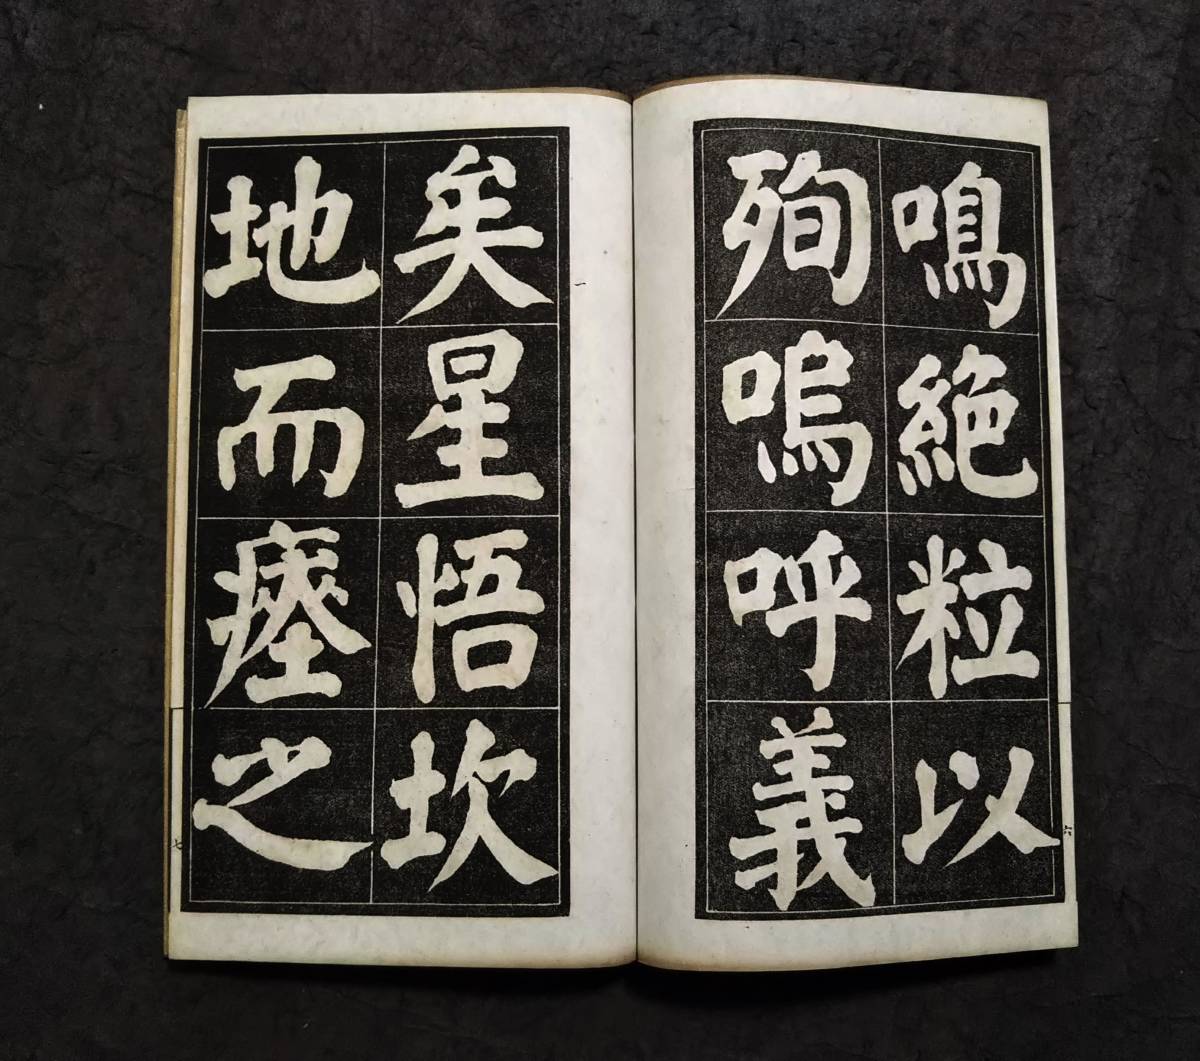 鳴絶粒以
殉嗚呼義
矣星悟坎
地而瘞之
六
七